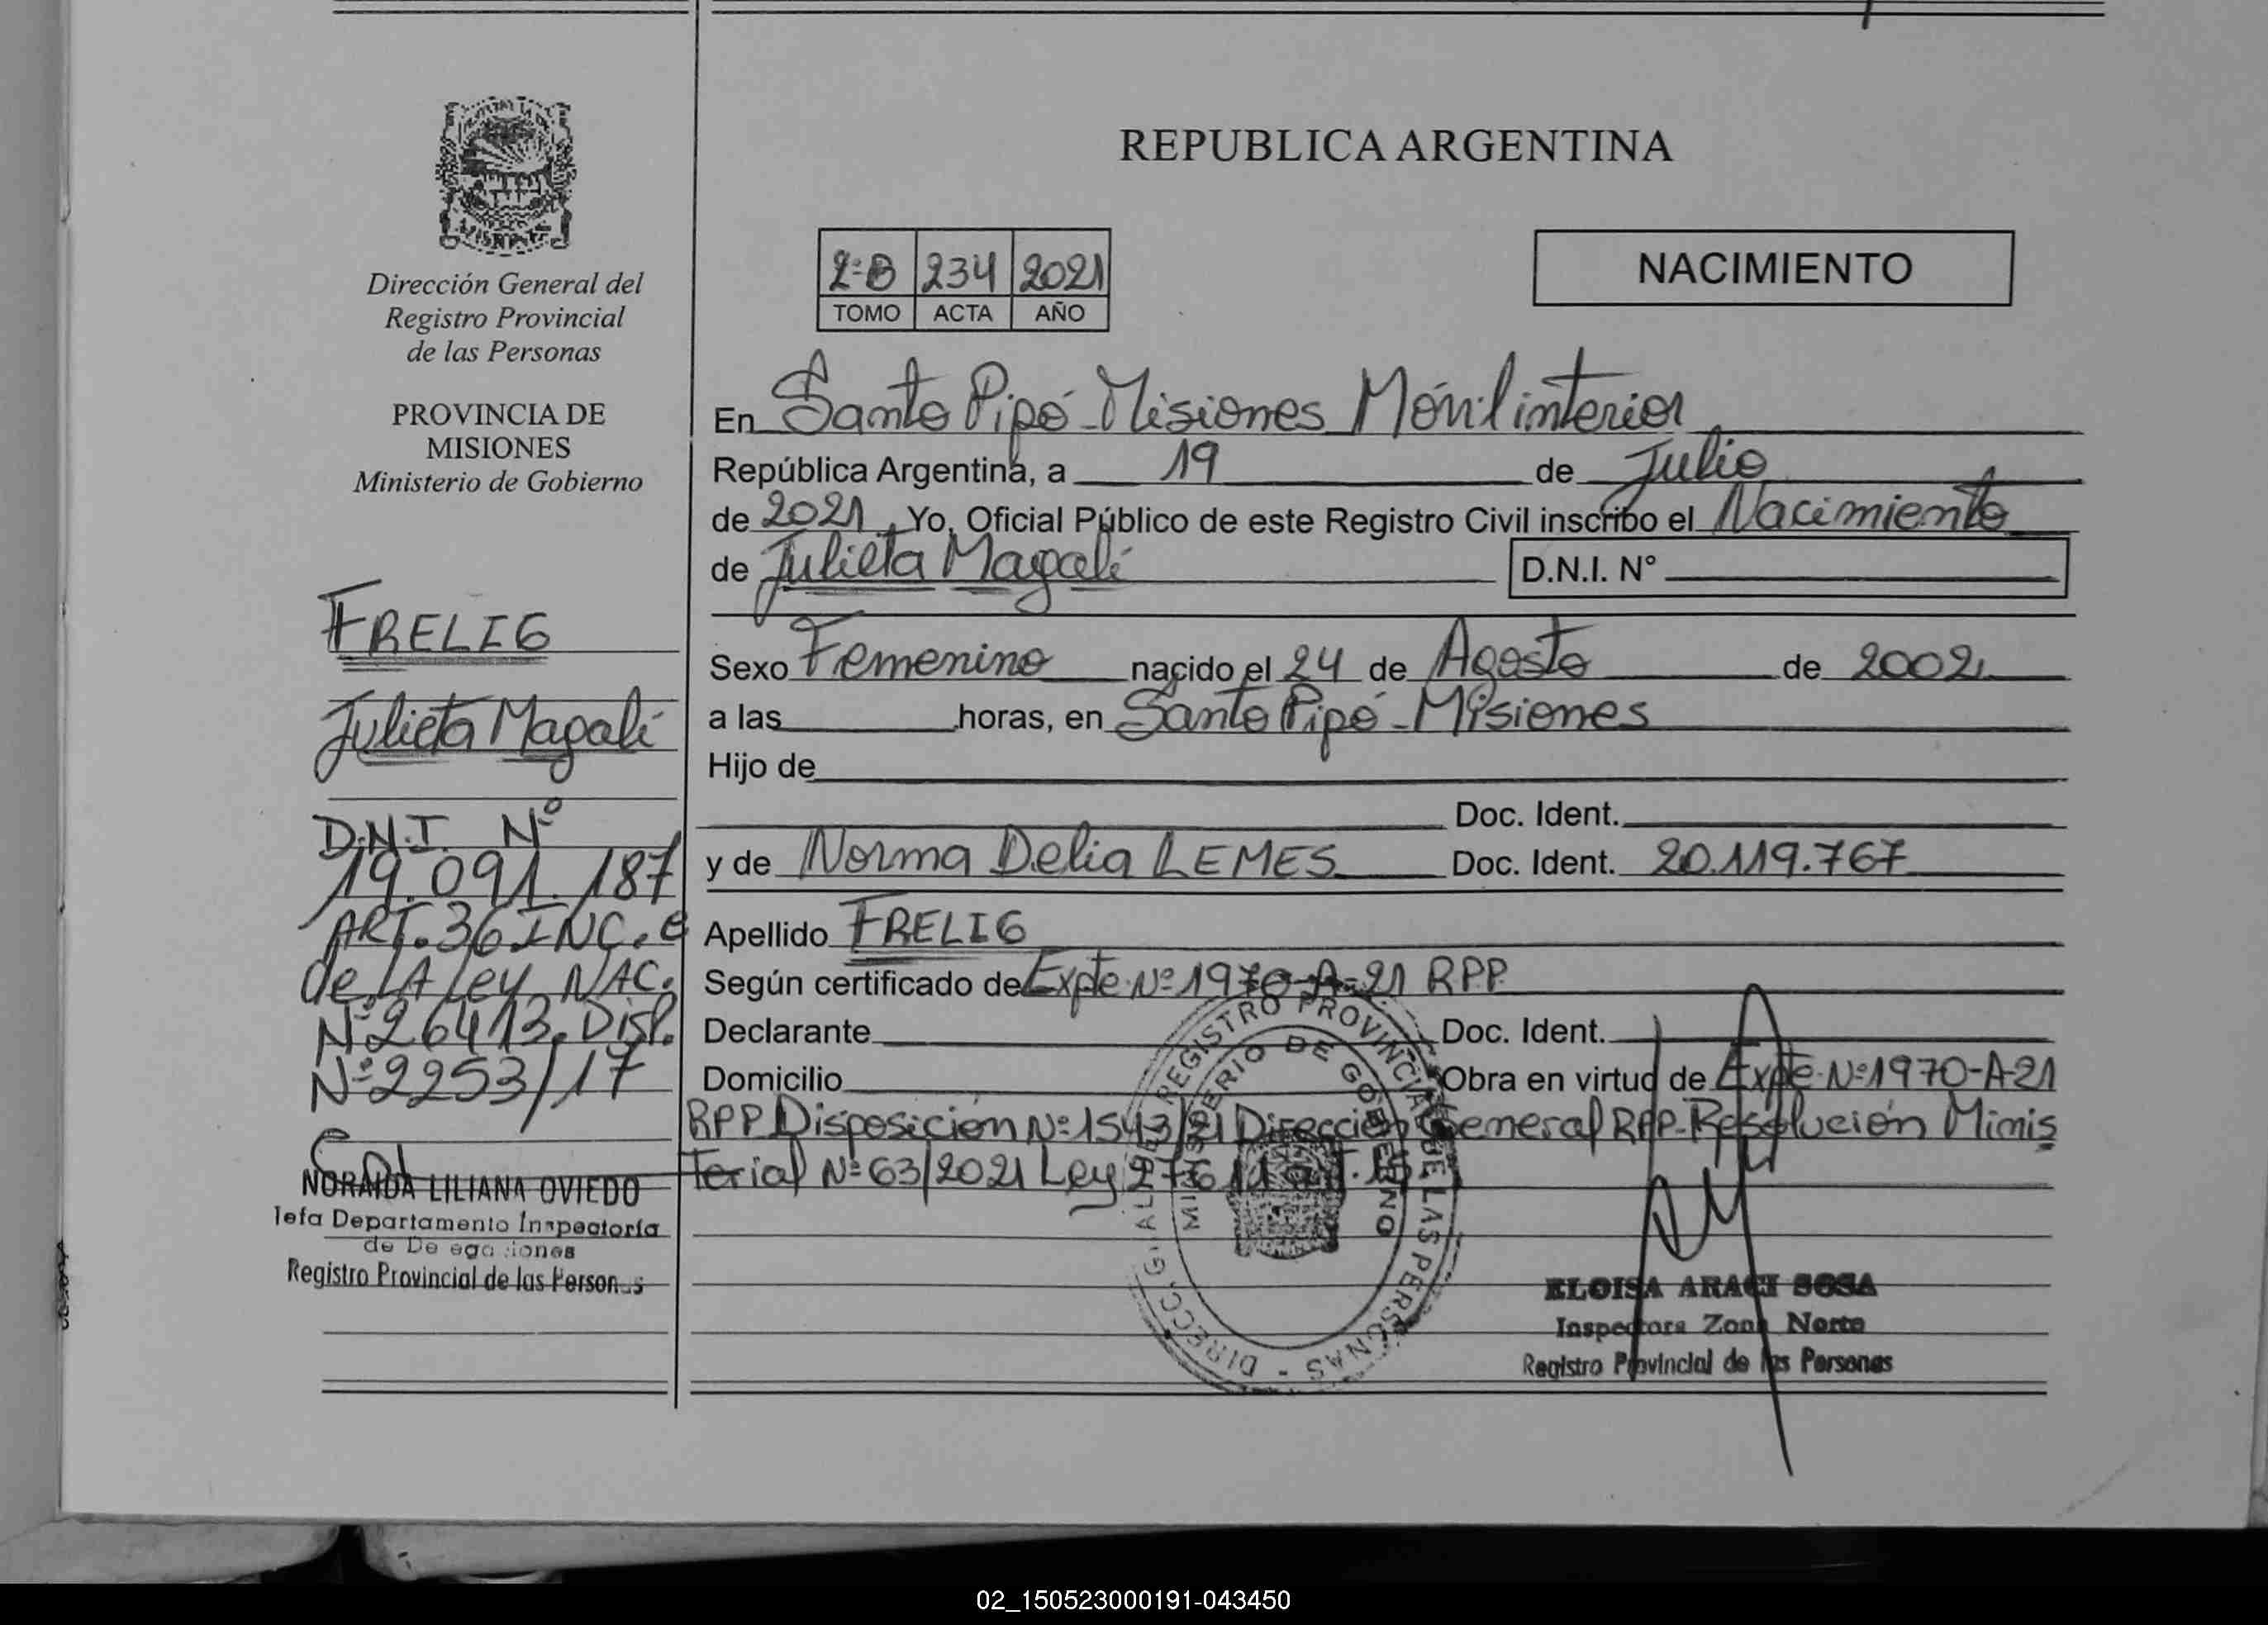 REPUBLICA ARGENTINA
Dirección General del
Registro Provincial
de las Personas
PROVINCIA DE
MISIONES
Ministerio de Gobierno
2º B 234 2021
TOMO ACTA AÑO
NACIMIENTO
En Santo Pipó-Misiones Móvil interior
República Argentina, a 19 de Julio
de 2021, Yo, Oficial Público de este Registro Civil inscribo el Nacimiento
de Julieta Magalí D.N.I. N°
Sexo Femenino nacido el 24 de Agosto de 2002
a las horas, en Santo Pipó-Misiones
Hijo de
Doc. Ident.
y de Norma Delia LEMES Doc. Ident. 20.119.767
Apellido FRELIG
Según certificado de Expte Nº 1970-A-21 RPP
Declarante Doc. Ident.
Domicilio Obra en virtud de Expte Nº1970-A-21
RPP Disposición Nº 1543/21 Dirección General RPP-Resolución Minis
terial Nº 63/2021 Ley
FRELIG
Julieta Magalí
D.N.I. Nº
19.091.187
ART.36 INC. e
de LA Ley NAC.
Nº26413. Disp.
Nº2253/17
NORAIDA LILIANA OVIEDO
Jefa Departamento Inspectoría
de
Registro Provincial de las Personas
REGISTRO PROVINCIAL DE LAS PERSONAS - DIRECC. GRAL. DEL
MINISTERIO DE GOBIERNO
ELOISA ARACI SOSA
Inspectora Zona Norte
Registro Provincial de las Personas
02_150523000191-043450